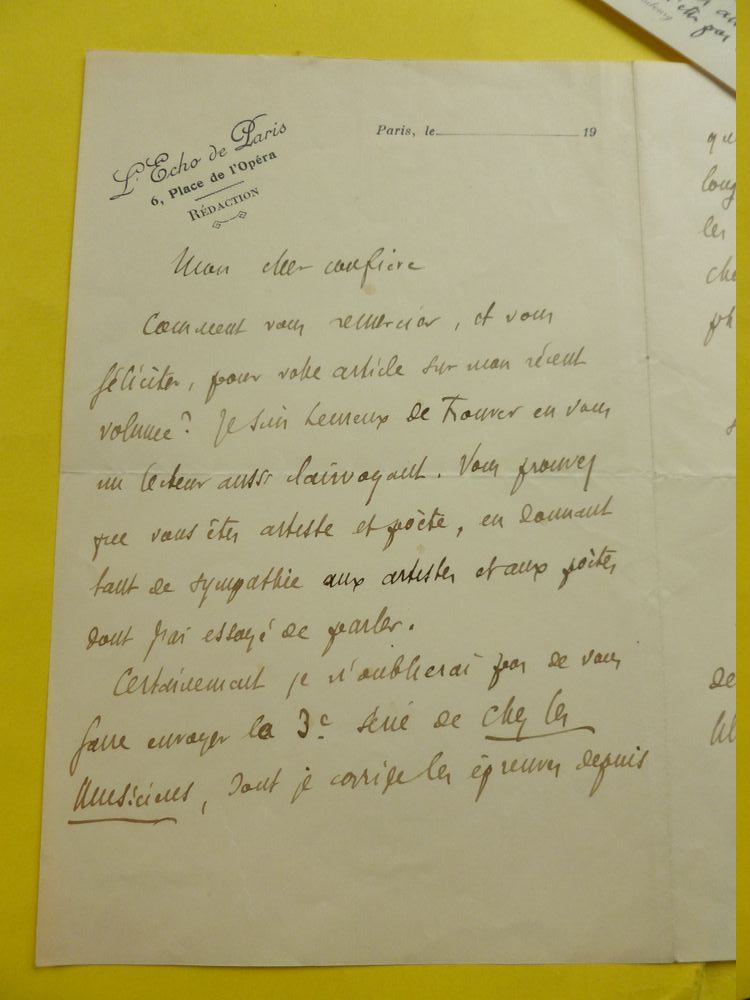 L'Echo de Paris
6, Place de l'Opéra
RÉDACTION
Paris, le 19
Mon cher confrère
Comment vous remercier, et vous
féliciter, pour votre article sur mon récent
volume? Je suis heureux de trouver en vous
un lecteur aussi clairvoyant. Vous prouvez
que vous êtes artiste et poète, en donnant
tant de sympathie aux artistes et aux poètes
dont j'ai essayé de parler.
Certainement je n'oublierai pas de vous
faire envoyer la 3e série de Chez les
Musiciens, dont je corrige les épreuves depuis
les
de